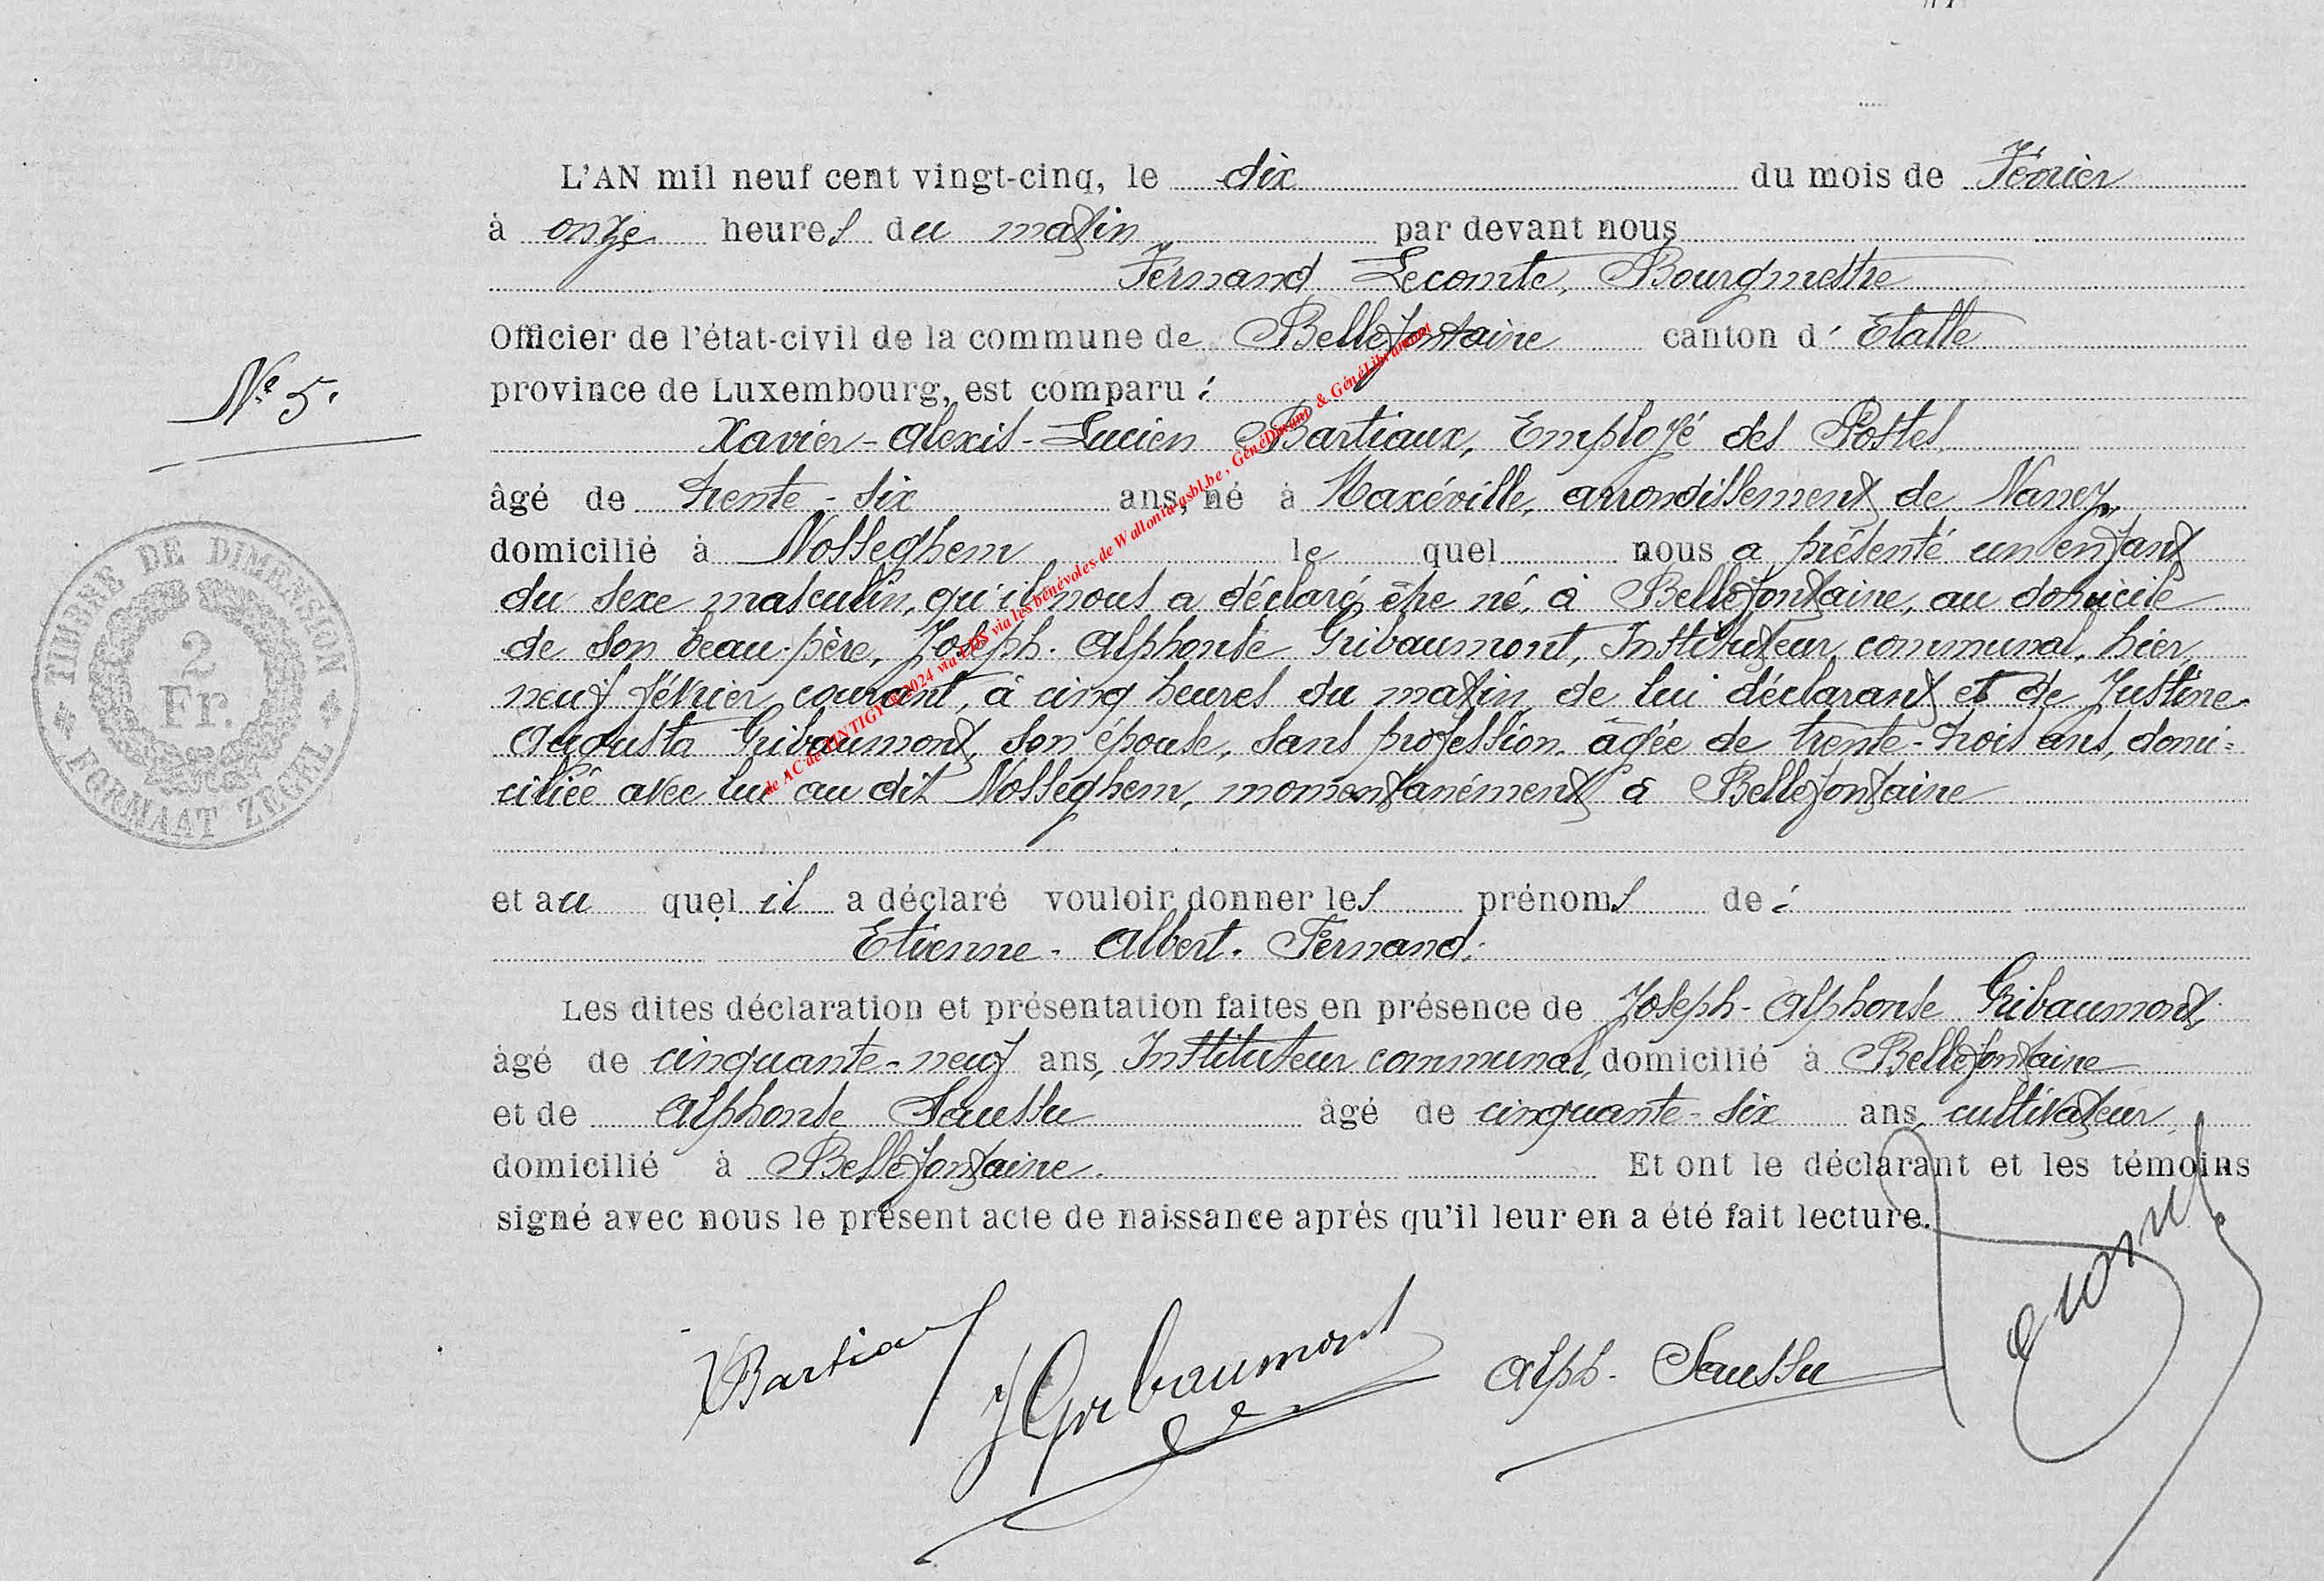 L'AN mil neuf cent vingt-cinq, le dix du mois de Février
à onze heures du matin par devant nous
Fernand Lecomte, Bourgmestre
Officier de l'état-civil de la commune de Bellefontaine canton d' Etalle
province de Luxembourg, est comparu :
N° 5.
Xavier-Alexis-Lucien Bartiaux, Employé des Postes
âgé de trente-six ans, né à Maxéville, arrondissement de Nancy,
domicilié à Nosseghem le quel nous a présenté un enfant
du sexe masculin, qu'il nous a déclaré être né, à Bellefontaine, au domicile
de son beau-père, Joseph-Alphonse Gribaumont, Instituteur communal, hier,
neuf février courant, à cinq heures du matin, de lui déclarant et de Justine-
Augusta Gribaumont, son épouse, sans profession, âgée de trente-trois ans, domi-
ciliée avec lui au dit Nosseghem, momentanément à Bellefontaine
et au quel il a déclaré vouloir donner les prénoms de :
Etienne-Albert-Fernand.
Les dites déclaration et présentation faites en présence de Joseph-Alphonse Gribaumont,
âgé de cinquante-neuf ans, Instituteur communal, domicilié à Bellefontaine
et de Alphonse Saussu âgé de cinquante-six ans, cultivateur,
domicilié à Bellefontaine. Et ont le déclarant et les témoins
signé avec nous le présent acte de naissance après qu'il leur en a été fait lecture.
XBartiaux JGribaumont Alph. Saussu
TIMBRE DE DIMENSION
2
Fr.
FORMAAT ZEGEL
de AC de TINTIGY © 2024 via LDS via les bénévoles de Wallonia-asbl.be , GénéDinant & GénéLibramont